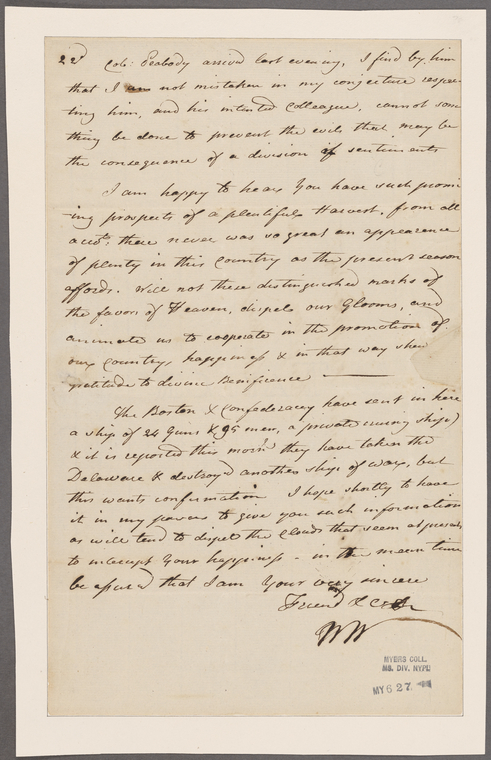 22d Col: Peabody arrived last evening, I find by him
that I am not mistaken in my conjecture respec-
ting him, and his intended Colleague, cannot some
thing be done to prevent the evils that may be
the consequence of a division of sentiments
I am happy to hear You have such promis
-ing prospects of a plentiful Harvest, from all
accts, there never was so great an appearence
of plenty in this Country as the present season
affords. Will not these distinguished marks of
the favors of Heaven, dispel our Glooms, and
animate us to cooperate in the promotion of
our Country, happiness & in that way shew
gratitude to divine Benificence
The Boston & Confederacy have sent in here
a ship of 24 Guns & 95 men, a private ship)
& it is reported this morng they have taken the
Delaware & destroyd another ship of war, but
this wants confirmation I hope shortly to have
it in my power to give you such information
as will tend to dispel the Clouds that seem at present
to intercept Your happiness - in the mean time
be assured that I am Your very sincere
Friend &c
WW
MYERS COLL.
MS. DIV. NYPL
MY 6 27